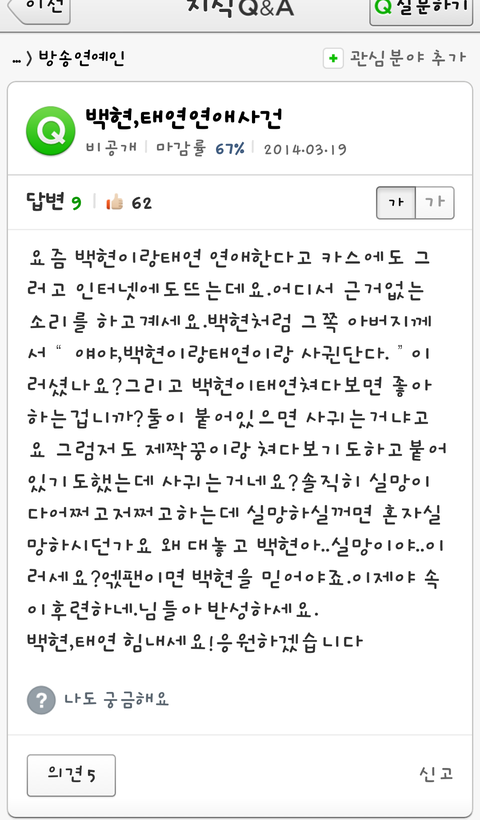 이전
지식Q&A
Q 질문하기
... > 방송연예인
관심분야 추가
Q
백현,태연연애사건
비공개 | 마감률 67% | 2014.03.19
답변 9 | 62
가 가
요즘 백현이랑태연 연애한다고 카스에도 그
러고 인터넷에도뜨는데요.어디서 근거없는
소리를 하고계세요.백현처럼 그쪽 아버지께
서 “ 얘야,백현이랑태연이랑 사귄단다. ” 이
러셨나요?그리고 백현이태연쳐다보면 좋아
하는겁니까?둘이 붙어있으면 사귀는거냐고
요 그럼저도 제짝꿍이랑 쳐다보기도하고붙어
있기도했는데 사귀는거네요?솔직히 실망이
다어쩌고저쩌고하는데 실망하실꺼면 혼자실
망하시던가요 왜 대놓고 백현아..실망이야..이
러세요?엑팬이면 백현을 믿어야죠.이제야 속
이후련하네.님들아 반성하세요.
백현,태연 힘내세요!응원하겠습니다
? 나도 궁금해요
의견 5
신고